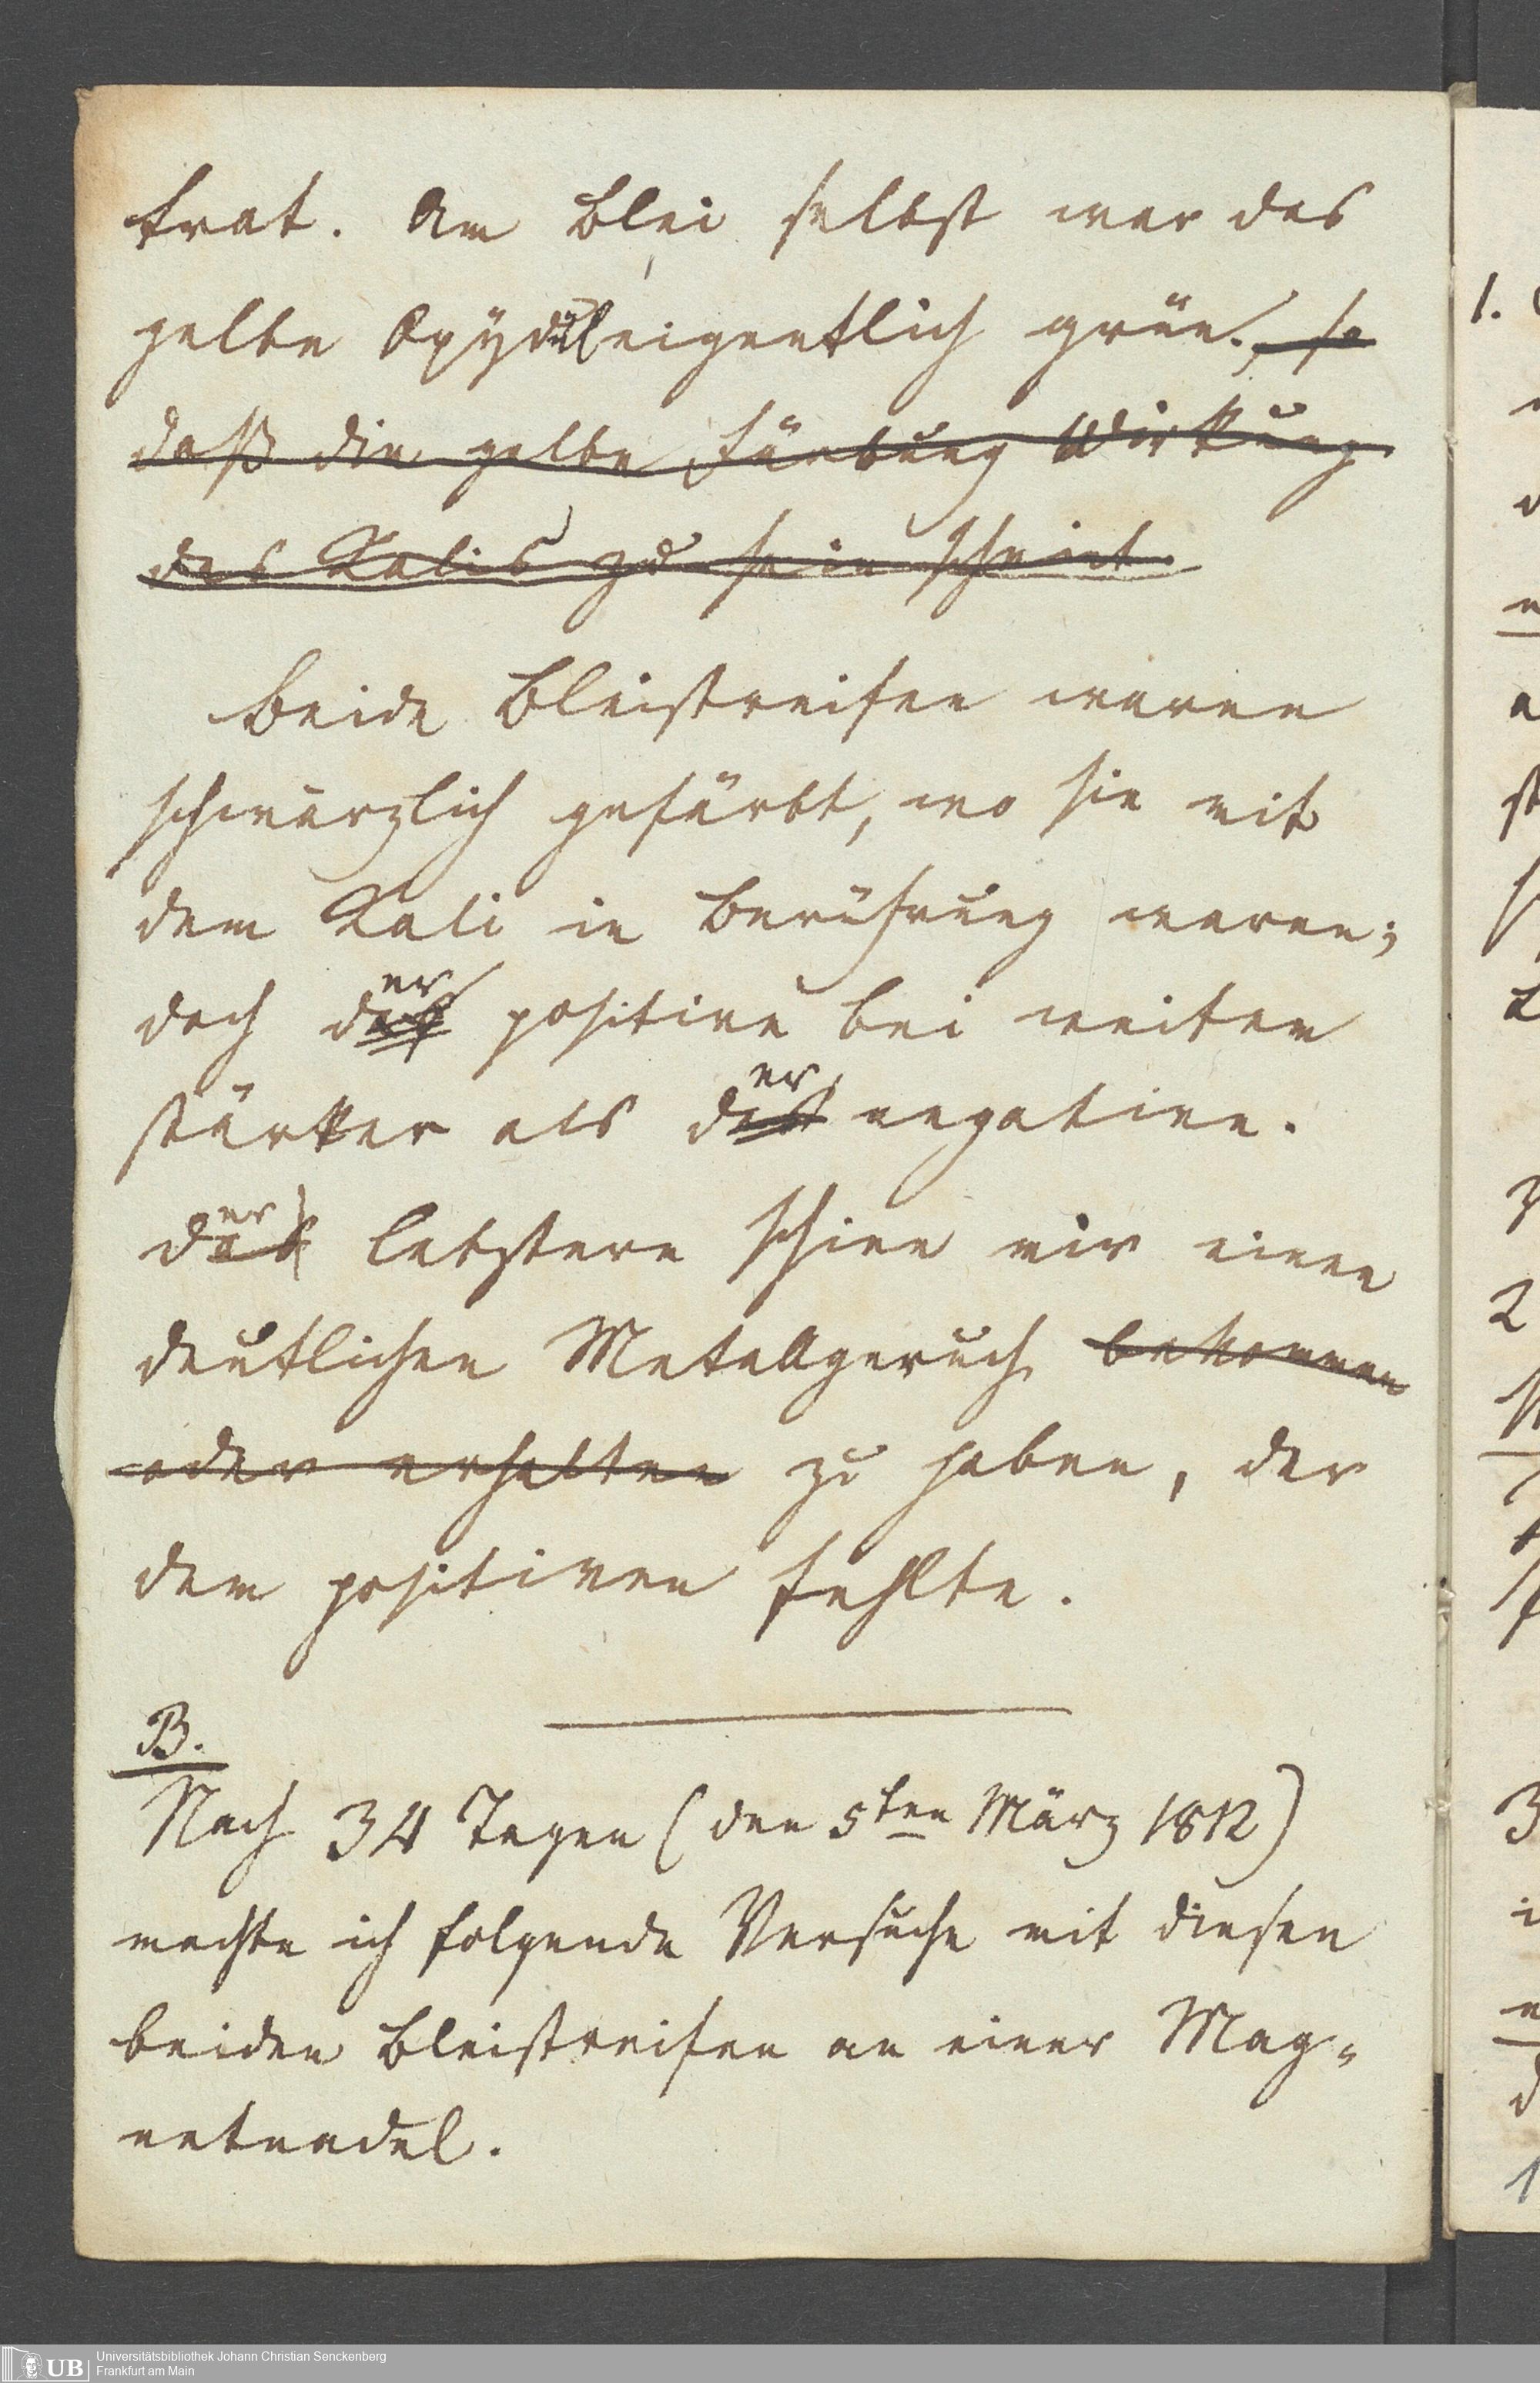 trat. Am Blei selbst war das
gelbe Oxydul eigentlich grün., so
daß die gelbe Färbung Wirkung
des Kalis zu sein scheint.
Beide Bleistreifen waren
schwärzlich gefärbt, wo sie mit
dem Kali in Berührung waren;
doch der positive bei weitem
stärker als der negative.
der letztere schien mir einen
deutlichen Metallgeruch bekommen
oder erhalten zu haben, der
dem positiven fehlte.
B.
Nach 34 Tagen (den 5ten März 1812)
machte ich folgende Versuche mit diesen
beiden Bleistreifen an einer Mag-
netnadel.
Universitätsbibliothek Johann Christian Senckenberg
Frankfurt am Main
UB